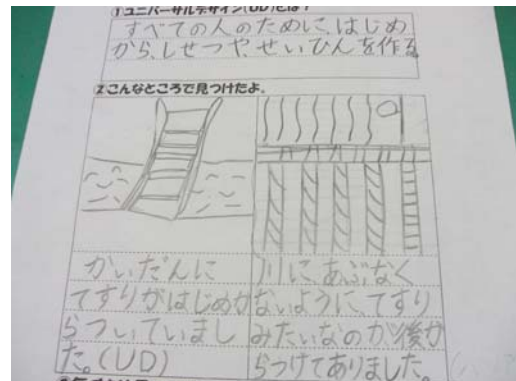 ①ユニバーサルデザイン(UD)とは?
すべての人のために、はじめ
から、しせつや、せいひんを作る
②こんなところで見つけたよ。
かいだんに
てすりがはじめか
らついていまし
た。(UD)
川に、あぶなく
ないように、てすり
みたいなのが、後か
らつけてありました。